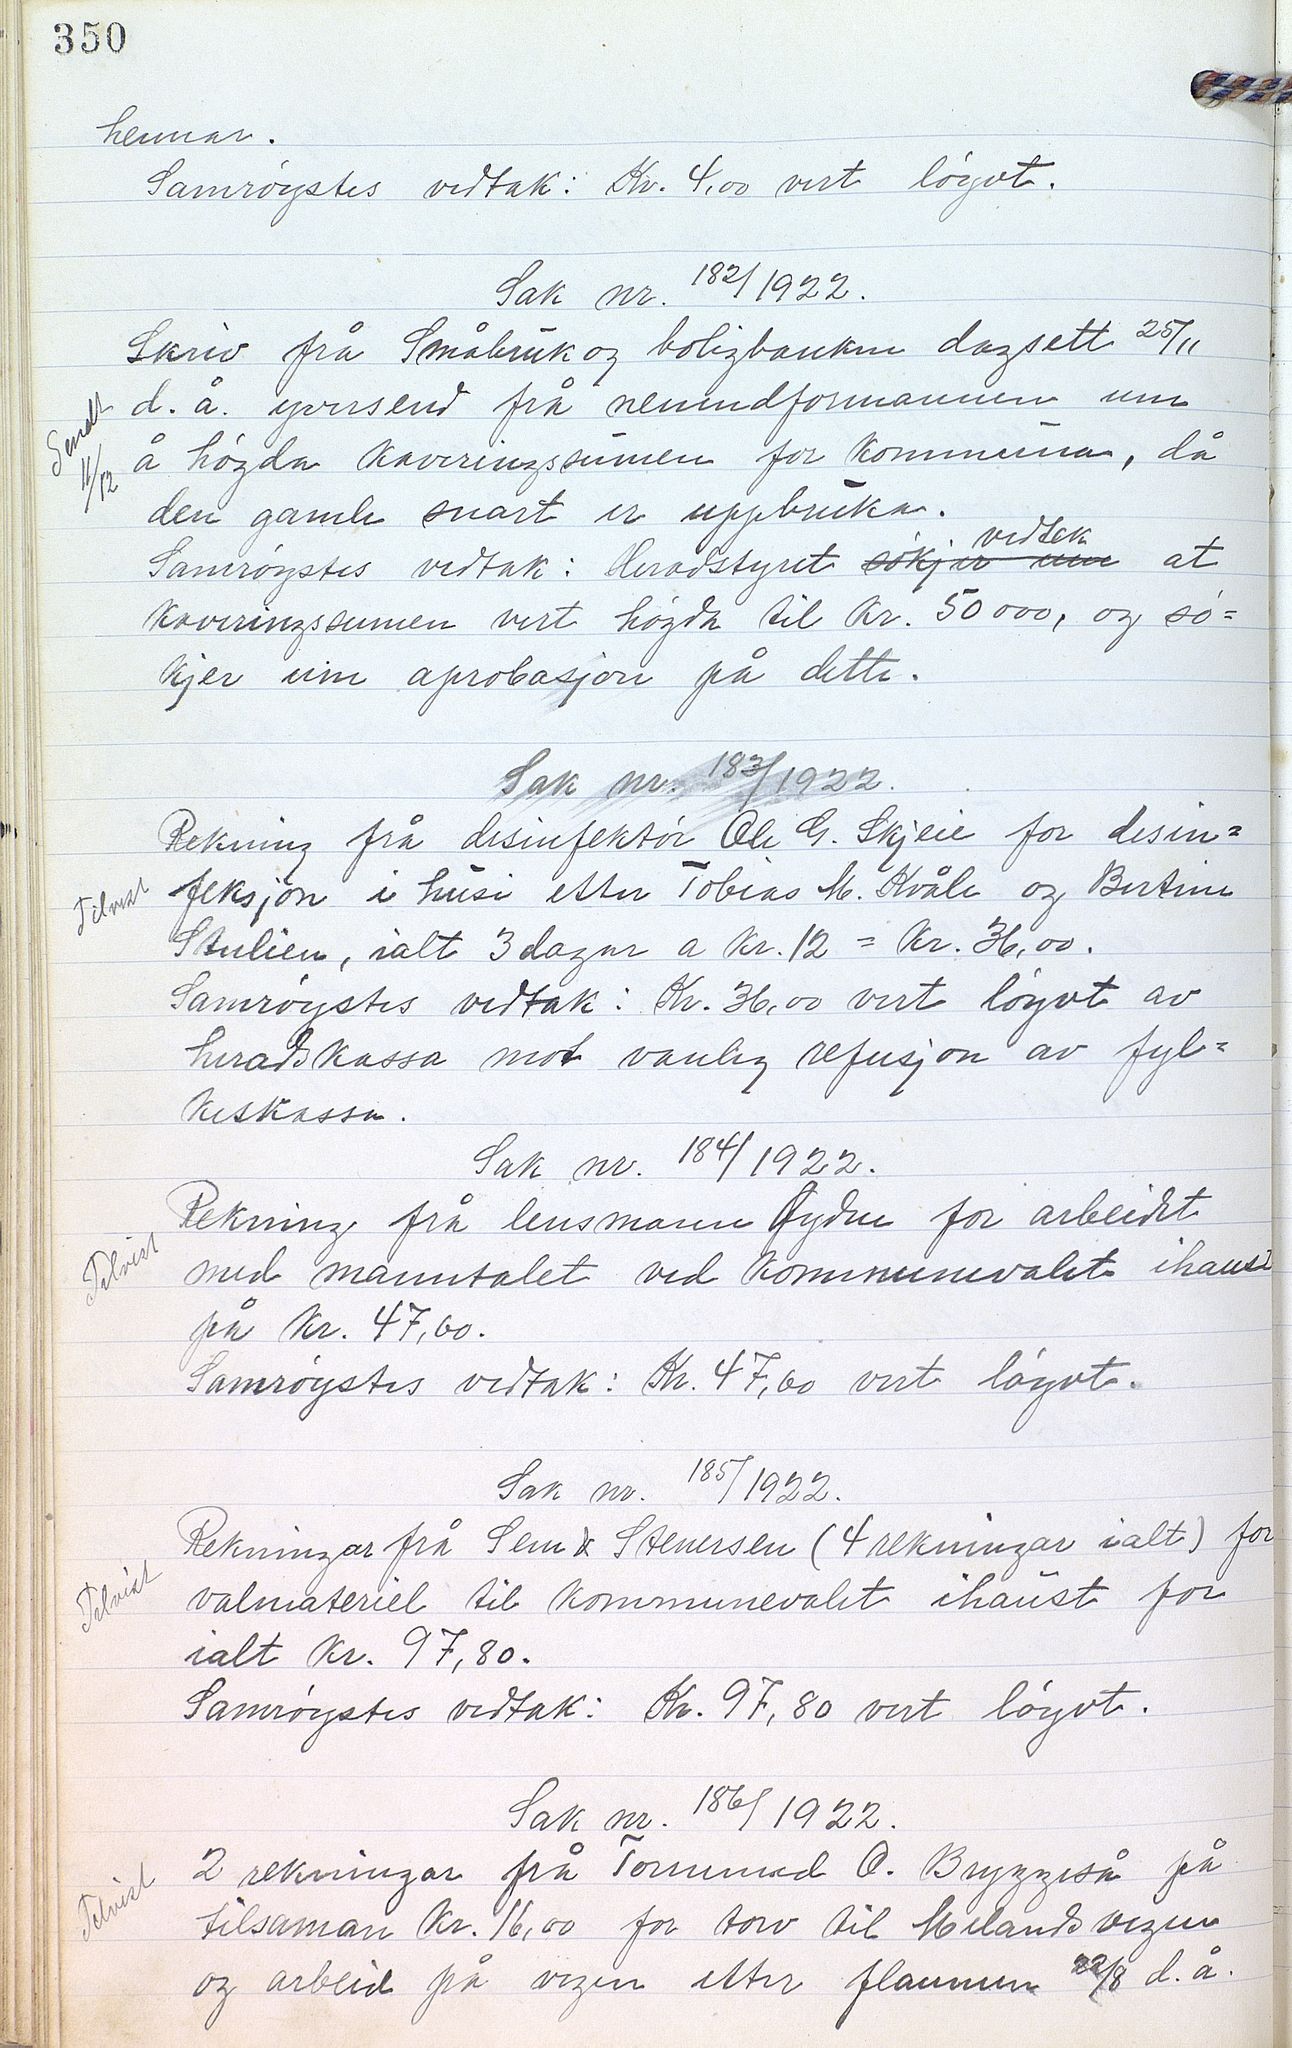 350
heimar.
Samrøystes vedtak: Kr. 4,00 vert løyvt.
Sak nr. 182/1922.
Skriv frå Småbruk og boligbanken dagsett 25/11
d. å. yversend frå nemndformannen um
å høgda kaveringssumen for kommuna, då
den gamle snart er uppbruka.
Sendt 11/12
Samrøystes vedtak: Heradstyret ~~søkjer um~~ vedtek at
kaveringssumen vert høgda til kr. 50000, og sø=
kjer um aprobasjon på dette.
Sak nr. 183/1922.
Rekning frå desinfektør Ole G. Skjeie for desin=
feksjon i husi etter Tobias M. Kvåle og Bertine
Stulien, ialt 3 dagar a kr. 12 = kr. 36,00.
Tilvist
Samrøystes vedtak: Kr. 36,00 vert løyvt av
heradskassa mot vanleg refusjon av fyl=
keskassa.
Sak nr. 184/1922.
Rekning frå lensmann Øydne for arbeidet
med manntalet ved kommunevalet ihaust
på kr. 47,60.
Tilvist
Samrøystes vedtak: Kr. 47,60 vert løyvt.
Sak nr. 185/1922.
Rekningar frå Sem & Stenersen (4 rekningar ialt) for
valmateriel til kommunevalet ihaust for
ialt kr. 97,80.
Tilvist
Samrøystes vedtak: Kr. 97,80 vert løyvt.
Sak nr. 186/1922.
2 rekningar frå Tormund O. Bryggeså på
tilsaman kr. 16,00 for torv til Melandsvegen
og arbeid på vegen etter flaumen 22/8 d. å.
Tilvist